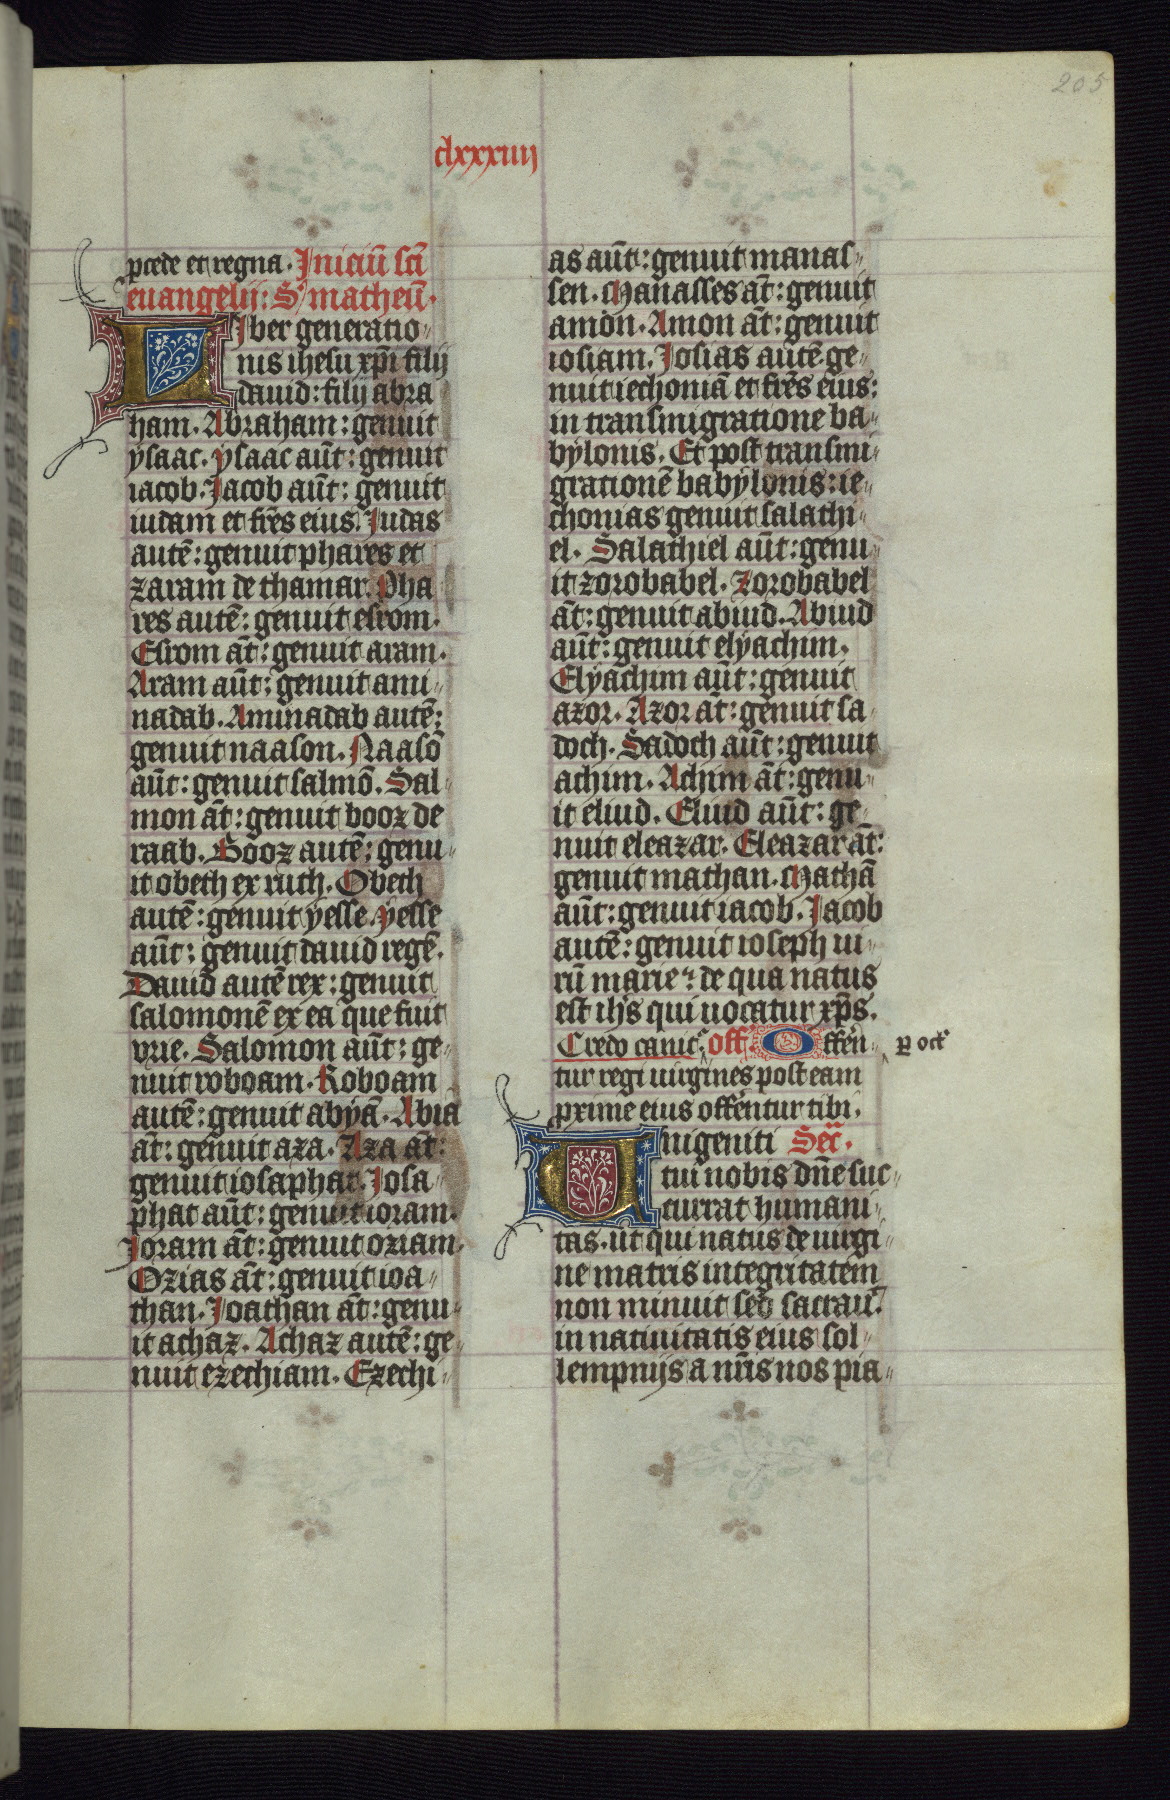 205
clxxxiiij
pcede et regna. Iniciū sci
euangelij: S' matheū.
Liber generatio
nis ihesu xpi filij
dauid: filij abra
ham. Abraham: genuit
ysaac. ysaac aūt: genuit
iacob. Jacob aūt: genuit
iudam et frēs eius. Judas
autē: genuit phares et
zaram de thamar. Pha
res autē: genuit esrom.
Esrom āt: genuit aram.
Aram aūt: genuit ami
nadab. Aminadab autē:
genuit naason. Naasō
aūt: genuit salmō. Sal
mon āt: genuit booz de
raab. Booz autē: genu
it obeth ex ruth. Obeth
autē: genuit yesse. yesse
aūt: genuit dauid regē.
Dauid autē rex: genuit
salomonē ex ea que fuit
vrie. Salomon aūt: ge
nuit roboam. Roboam
autē: genuit abyā. Abia
āt: genuit aza. Aza āt:
genuit iosaphat. Josa
phat aūt: genuit ioram.
Joram āt: genuit oziam.
Ozias āt: genuit ioa
than. Joathan āt: genu
it achaz. Achaz autē: ge
nuit ezechiam. Ezechi
as aūt: genuit manas
sen. Manasses āt: genuit
amon. Amon āt: genuit
iosiam. Josias autē ge
nuit iechoniā et frēs eius:
in transmigratione ba
bylonis. Et post transmi
grationē babylonis: ie
chonias genuit salathi
el. Salathiel aūt: genu
it zorobabel. Zorobabel
āt: genuit abiud. Abiud
aūt: genuit elyachim.
Elyachim aūt: genuit
azor. Azor āt: genuit sa
doch. Sadoch aūt: genuit
achim. Achim āt: genu
it eliud. Eliud aūt: ge
nuit eleazar. Eleazar āt:
genuit mathan. Mathā
aūt: genuit iacob. Jacob
autē: genuit ioseph ui
rū marie: de qua natus
est ihs qui uocatur xps.
Credo canit' off' Offen p oct'
tur regi uirgines post eam
pxime eius offentur tibi.
Vnigeniti Sec.
tui nobis dne suc
currat humani
tas. ut qui natus de uirgi
ne matris integritatem
non minuit sed sacrau'
in natiuitatis eius sol
lempnijs a nris nos pia